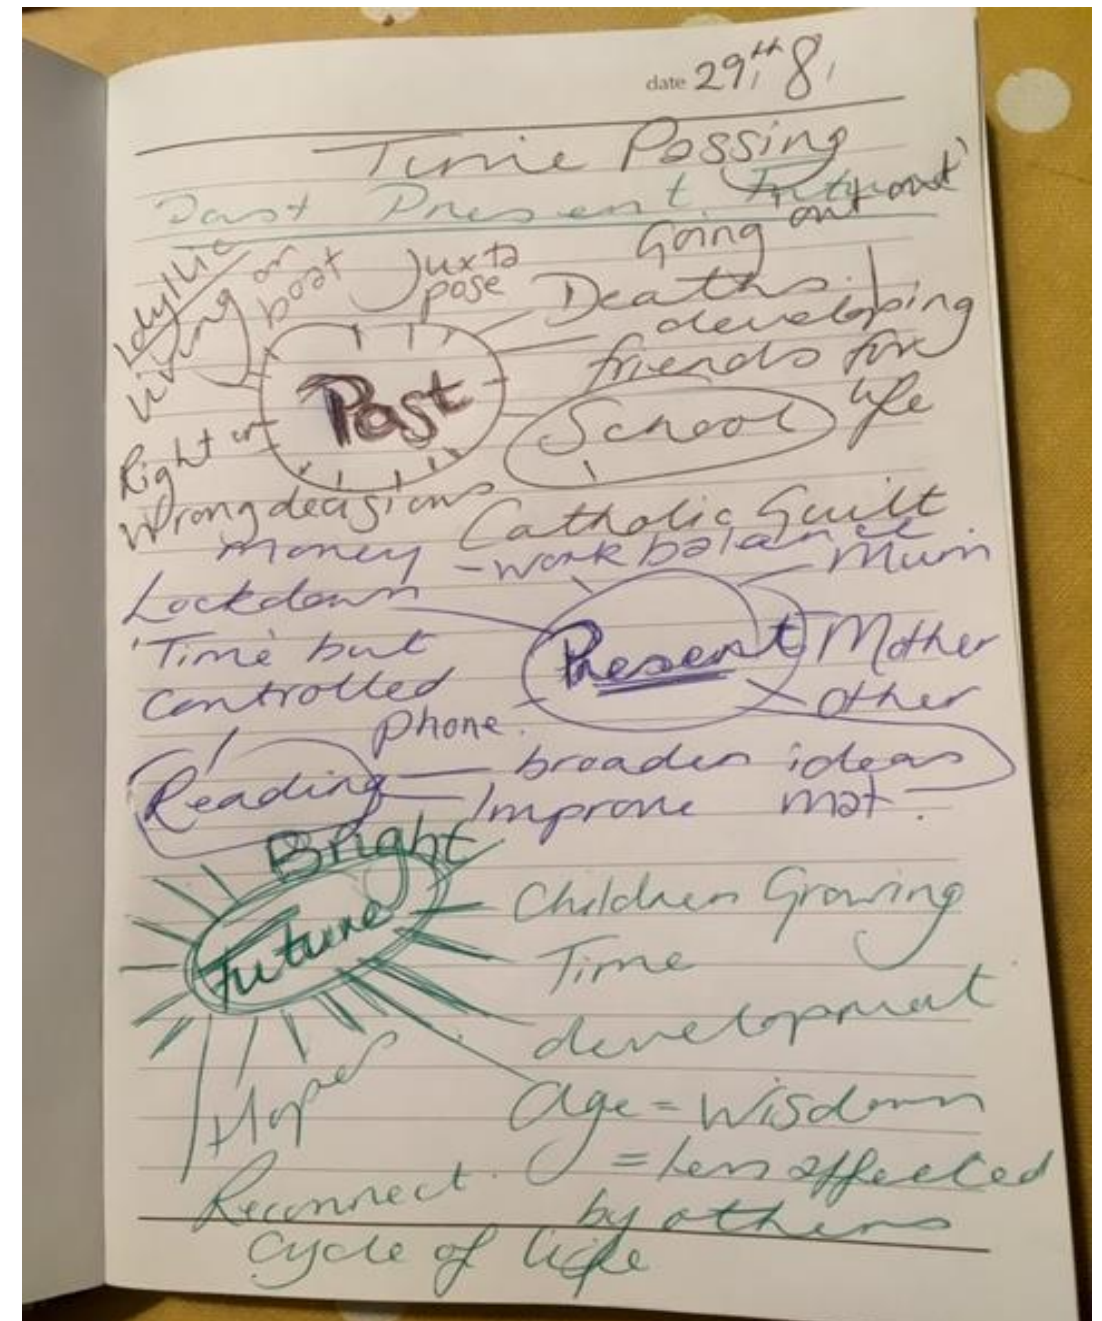 date 29th, 8,
Time Passing
Past Present. Future
Going 'out out'
Idyllic
living on
boat
Juxta
pose
Deaths.
developing
friends for
life
Past
School
Right or
Wrong decisions
Catholic Guilt
Money - work balance
Mum
Lockdown
'Time' but
controlled
Present
Mother
Other
phone.
Reading - broaden ideas
- Improve mat.
Bright
Future
Children Growing
Time
development
Hope
Age = Wisdom
= less affected
by others
Reconnect.
Cycle of life